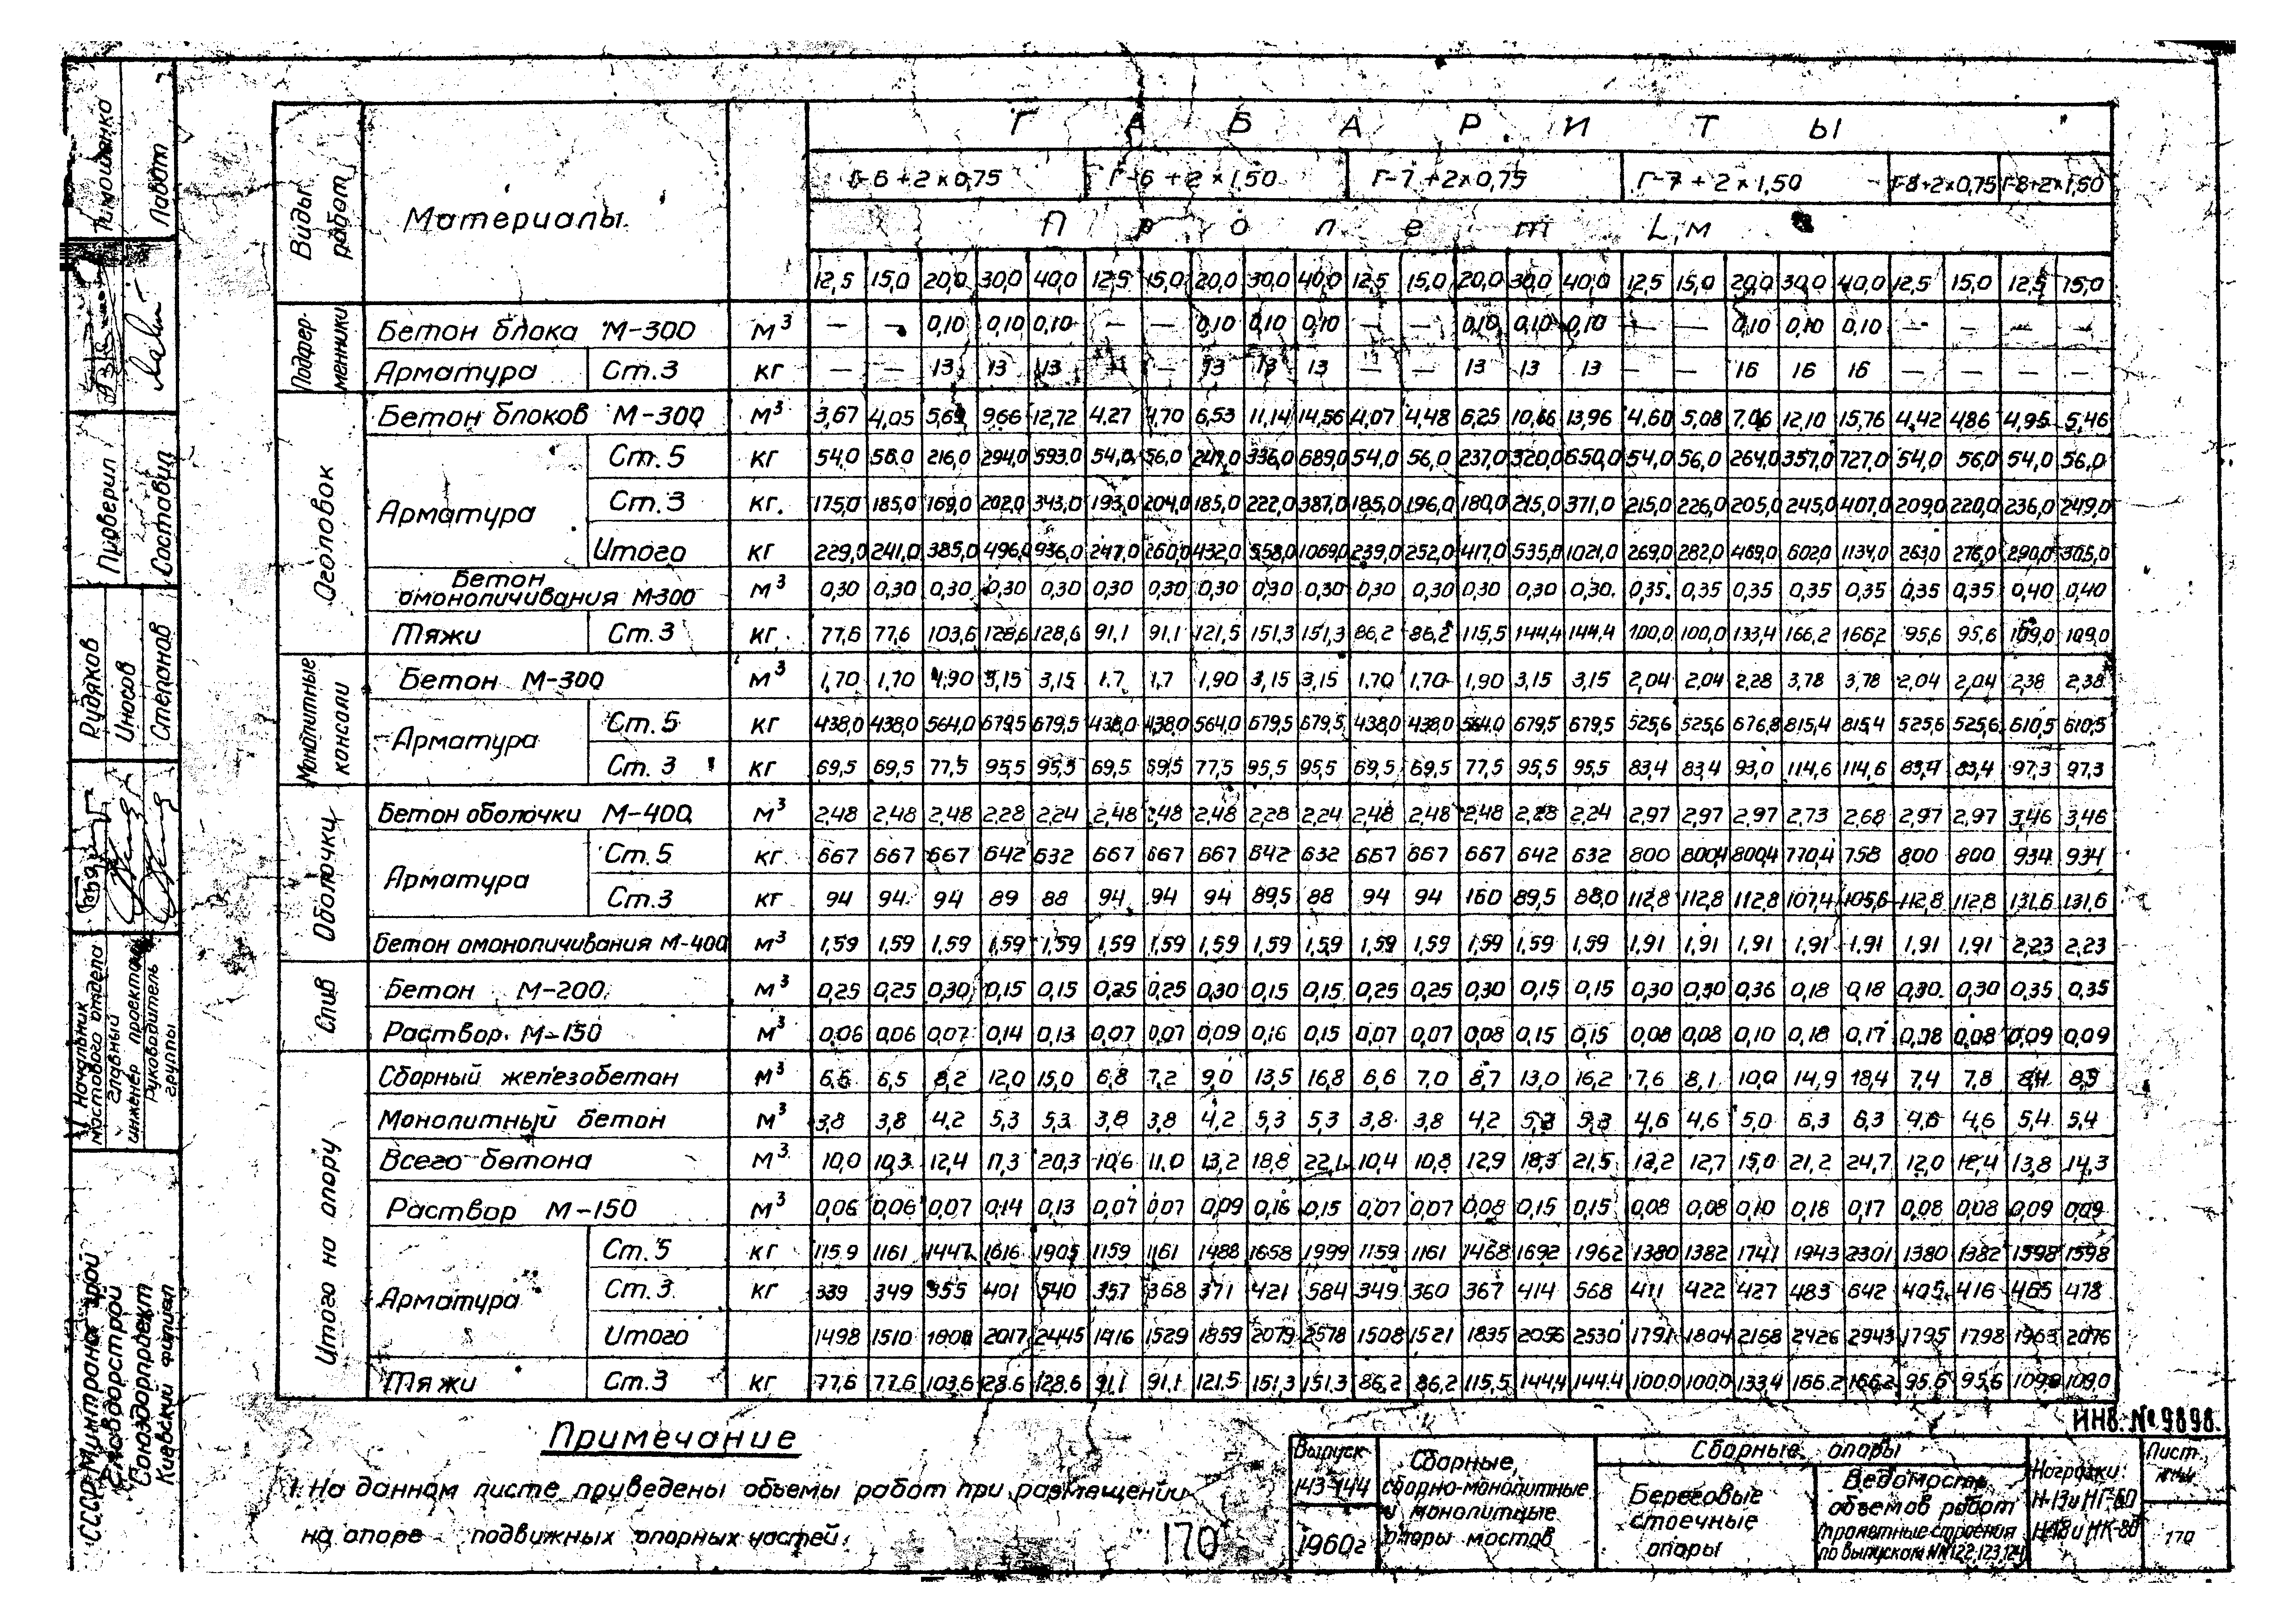 Виды работ
Материалы
ГАБАРИТЫ
Г-6+2×0,75 Г-6+2×1,50 Г-7+2×0,75 Г-7+2×1,50 Г-8+2×0,75 Г-8+2×1,50
Пролет L, м
12,5 15,0 20,0 30,0 40,0 12,5 15,0 20,0 30,0 40,0 12,5 15,0 20,0 30,0 40,0 12,5 15,0 20,0 30,0 40,0 12,5 15,0 12,5 15,0
Подфер-
менники
Бетон блока М-300 м³ — — 0,10 0,10 0,10 — — 0,10 0,10 0,10 — — 0,10 0,10 0,10 — — 0,10 0,10 0,10 — — — —
Арматура Ст.3 кг — — 13 13 13 — — 13 13 13 — — 13 13 13 — — 16 16 16 — — — —
Оголовок
Бетон блоков М-300 м³ 3,67 4,05 5,69 9,66 12,72 4,27 4,70 6,53 11,14 14,56 4,07 4,48 6,25 10,66 13,96 4,60 5,08 7,06 12,10 15,76 4,42 4,86 4,95 5,46
Арматура
Ст.5 кг 54,0 56,0 216,0 294,0 593,0 54,0 56,0 247,0 336,0 689,0 54,0 56,0 237,0 320,0 650,0 54,0 56,0 264,0 357,0 727,0 54,0 56,0 54,0 56,0
Ст.3 кг. 175,0 185,0 169,0 202,0 343,0 193,0 204,0 185,0 222,0 387,0 185,0 196,0 180,0 215,0 371,0 215,0 226,0 205,0 245,0 407,0 209,0 220,0 236,0 249,0
Итого кг 229,0 241,0 385,0 496,0 936,0 247,0 260,0 432,0 558,0 1069,0 239,0 252,0 417,0 535,0 1021,0 269,0 282,0 469,0 602,0 1134,0 263,0 276,0 290,0 305,0
Бетон
омоноличивания М-300 м³ 0,30 0,30 0,30 0,30 0,30 0,30 0,30 0,30 0,30 0,30 0,30 0,30 0,30 0,30 0,30 0,35 0,35 0,35 0,35 0,35 0,35 0,35 0,40 0,40
Тяжи Ст.3 кг 77,6 77,6 103,6 128,6 128,6 91,1 91,1 121,5 151,3 151,3 86,2 86,2 115,5 144,4 144,4 100,0 100,0 133,4 166,2 166,2 95,6 95,6 109,0 109,0
Монолитные
консоли
Бетон М-300 м³ 1,70 1,70 1,90 3,15 3,15 1,7 1,7 1,90 3,15 3,15 1,70 1,70 1,90 3,15 3,15 2,04 2,04 2,28 3,78 3,78 2,04 2,04 2,38 2,38
Арматура
Ст.5 кг 438,0 438,0 564,0 679,5 679,5 438,0 438,0 564,0 679,5 679,5 438,0 438,0 564,0 679,5 679,5 525,6 525,6 676,8 815,4 815,4 525,6 525,6 610,5 610,5
Ст.3 кг 69,5 69,5 77,5 95,5 95,5 69,5 69,5 77,5 95,5 95,5 69,5 69,5 77,5 95,5 95,5 83,4 83,4 93,0 114,6 114,6 83,4 83,4 97,3 97,3
Оболочки
Бетон оболочки М-400 м³ 2,48 2,48 2,48 2,28 2,24 2,48 2,48 2,48 2,28 2,24 2,48 2,48 2,48 2,28 2,24 2,97 2,97 2,97 2,73 2,68 2,97 2,97 3,46 3,46
Арматура
Ст.5 кг 667 667 667 642 632 667 667 667 642 632 667 667 667 642 632 800 800,4 800,4 770,4 758 800 800 934 934
Ст.3 кг 94 94 94 89 88 94 94 94 89,5 88 94 94 160 89,5 88,0 112,8 112,8 112,8 107,4 105,6 112,8 112,8 131,6 131,6
Бетон омоноличивания М-400 м³ 1,59 1,59 1,59 1,59 1,59 1,59 1,59 1,59 1,59 1,59 1,59 1,59 1,59 1,59 1,59 1,91 1,91 1,91 1,91 1,91 1,91 1,91 2,23 2,23
Слив
Бетон М-200 м³ 0,25 0,25 0,30 0,15 0,15 0,25 0,25 0,30 0,15 0,15 0,25 0,25 0,30 0,15 0,15 0,30 0,30 0,36 0,18 0,18 0,30 0,30 0,35 0,35
Раствор М-150 м³ 0,06 0,06 0,07 0,14 0,13 0,07 0,07 0,09 0,16 0,15 0,07 0,07 0,08 0,15 0,15 0,08 0,08 0,10 0,18 0,17 0,08 0,08 0,09 0,09
Итого на опору
Сборный железобетон м³ 6,6 6,5 8,2 12,0 15,0 6,8 7,2 9,0 13,5 16,8 6,6 7,0 8,7 13,0 16,2 7,6 8,1 10,0 14,9 18,4 7,4 7,8 8,4 8,9
Монолитный бетон м³ 3,8 3,8 4,2 5,3 5,3 3,8 3,8 4,2 5,3 5,3 3,8 3,8 4,2 5,3 5,3 4,6 4,6 5,0 6,3 6,3 4,6 4,6 5,4 5,4
Всего бетона м³ 10,0 10,3 12,4 17,3 20,3 10,6 11,0 13,2 18,8 22,1 10,4 10,8 12,9 18,3 21,5 12,2 12,7 15,0 21,2 24,7 12,0 12,4 13,8 14,3
Раствор М-150 м³ 0,06 0,06 0,07 0,14 0,13 0,07 0,07 0,09 0,16 0,15 0,07 0,07 0,08 0,15 0,15 0,08 0,08 0,10 0,18 0,17 0,08 0,08 0,09 0,09
Арматура
Ст.5 кг 1159 1161 1447 1616 1905 1159 1161 1488 1658 1999 1159 1161 1468 1692 1962 1380 1382 1741 1943 2301 1380 1382 1598 1598
Ст.3 кг 339 349 355 401 540 357 368 371 421 584 349 360 367 414 568 411 422 427 483 642 405 416 465 478
Итого 1498 1510 2017 2445 1416 1529 1859 2079 2578 1508 1521 1835 2056 2530 1791 1804 2168 2426 2943 1795 1798 1963 2076
Тяжи Ст.3 кг 77,6 77,6 103,6 128,6 128,6 91,1 91,1 121,5 151,3 151,3 86,2 86,2 115,5 144,4 144,4 100,0 100,0 133,4 166,2 166,2 95,6 95,6 109,0 109,0
Примечание
1. На данном листе приведены объемы работ при размещении
на опоре подвижных опорных частей.
170
Инв. № 9898.
Выпуск
143-144
1960г
Сборные,
сборно-монолитные
и монолитные
опоры мостов
Сборные опоры
Береговые
стоечные
опоры
Ведомость
объемов работ
/пролетные строения
по выпускам №№122,123,124/
Нагрузки:
Н-13 и НГ-60
Н-18 и НК-80
Лист
170
Тимошенко
Лабот
Проверил
Составил
Рудяков
Иносов
Степанов
Начальник
мостового отдела
Главный
инженер проекта
Руководитель
группы
СССР Минтрансстрой
Главдорстрой
Союздорпроект
Киевский филиал